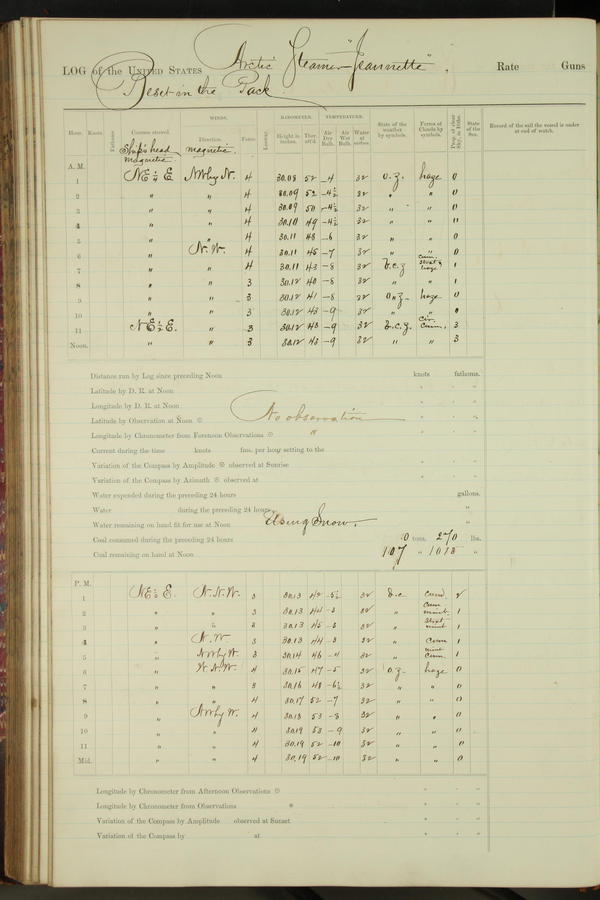 LOG of the UNITED STATES Arctic Steamer "Jeannette". Rate Guns
Beset in the Pack.
WINDS. BAROMETER. TEMPERATURE.
Hour. Knots. Fathoms. Courses steered. Direction. Force. Leeway. Height in inches. Ther. att'd. Air Dry Bulb. Air Wet Bulb. Water at surface. State of the weather by symbols. Forms of Clouds by symbols. Prop. of clear Sky, in 10ths. State of the Sea. Record of the sail the vessel is under at end of watch.
Ship's head magnetic magnetic.
A. M.
1 NE ¼ E NW by N. 4 30.08 52 -4 32 o.z. haze 0
2 " " 4 30.09 52 -4½ 32 " " 0
3 " " 4 30.09 50 -4½ 32 " " 0
4 " " 4 30.10 49 -4½ 32 " " 0
5 " " 4 30.11 48 -6 32 " " 0
6 " N.W. 4 30.11 45 -7 32 " " 0
7 " " 4 30.11 43 -8 32 b.c.z cum. strat & haze 1
8 " " 3 30.12 40 -8 32 " " 1
9 " " 3 30.12 41 -8 32 o.z. haze 0
10 " " 3 30.12 43 -9 32 " " 0
11 NE ½ E. " 3 30.12 43 -9 32 b.c.z. cir. cum. 3
Noon. " " 3 30.12 43 -9 32 " " 3
Distance run by Log since preceding Noon knots fathoms.
Latitude by D. R. at Noon
Longitude by D. R. at Noon
Latitude by Observation at Noon No observation
Longitude by Chronometer from Forenoon Observations "
Current during the time knots fms. per hour setting to the
Variation of the Compass by Amplitude observed at Sunrise
Variation of the Compass by Azimuth observed at
Water expended during the preceding 24 hours gallons.
Water during the preceding 24 hours "
Water remaining on hand fit for use at Noon Using Snow. "
Coal consumed during the preceding 24 hours 0 tons. 270 lbs.
Coal remaining on hand at Noon 107 " 1013 "
P. M.
1 N.N.W. 3 30.13 42 -5½ 32 b.c Cum 2
2 " " 3 30.13 44 -3 32 " 1
3 " " 3 30.13 45 -3 32 " 1
4 " N.W. 3 30.13 44 -3 32 " Cum 1
5 " NW by W. 3 30.14 46 -4 32 " Cum. 1
6 " W.N.W. 4 30.15 47 -5 32 o.z. haze 0
7 " " 3 30.16 48 -6½ 32 " " 0
8 " " 4 30.17 52 -7 32 " " 0
9 " NW by W. 4 30.18 53 -8 32 " " 0
10 " " 4 30.19 53 -9 32 " " 0
11 " " 4 30.19 52 -10 32 " " 0
Mid. " " 4 30.19 52 -10 32 " " 0
Longitude by Chronometer from Afternoon Observations
Longitude by Chronometer from Observations
Variation of the Compass by Amplitude observed at Sunset
Variation of the Compass by at